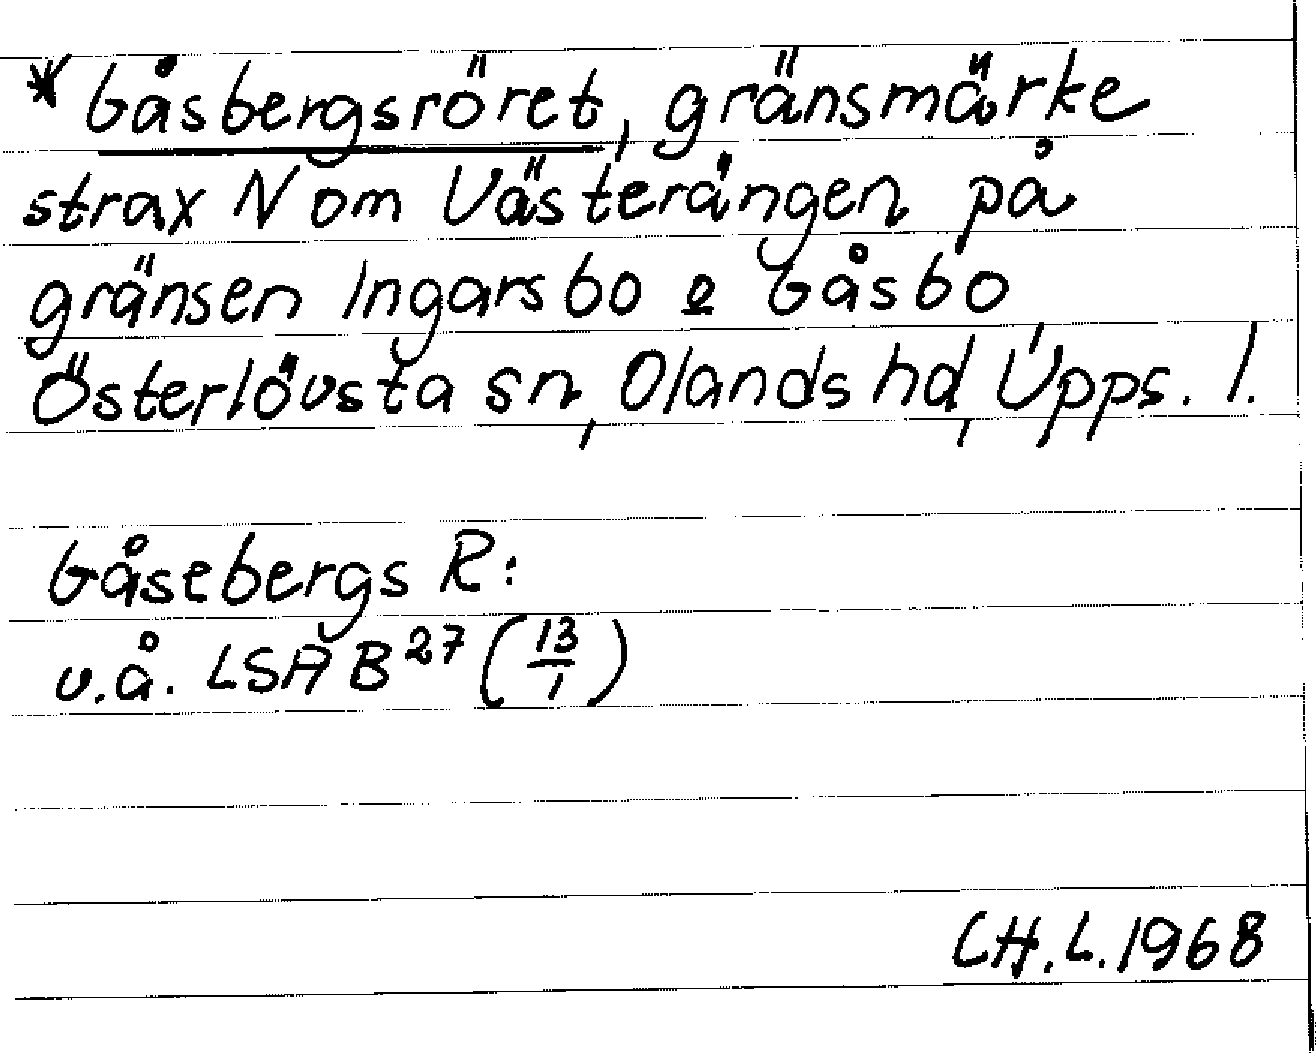 * Gåsbergsröret, gränsmärke
strax N om Västerängen på
gränsen Ingarsbo o Gåsbo
Österlövsta sn, Olands hd, Upps. l.
Gåsebergs R:
u.å. LSA B 27 (13/1)
CH.L. 1968